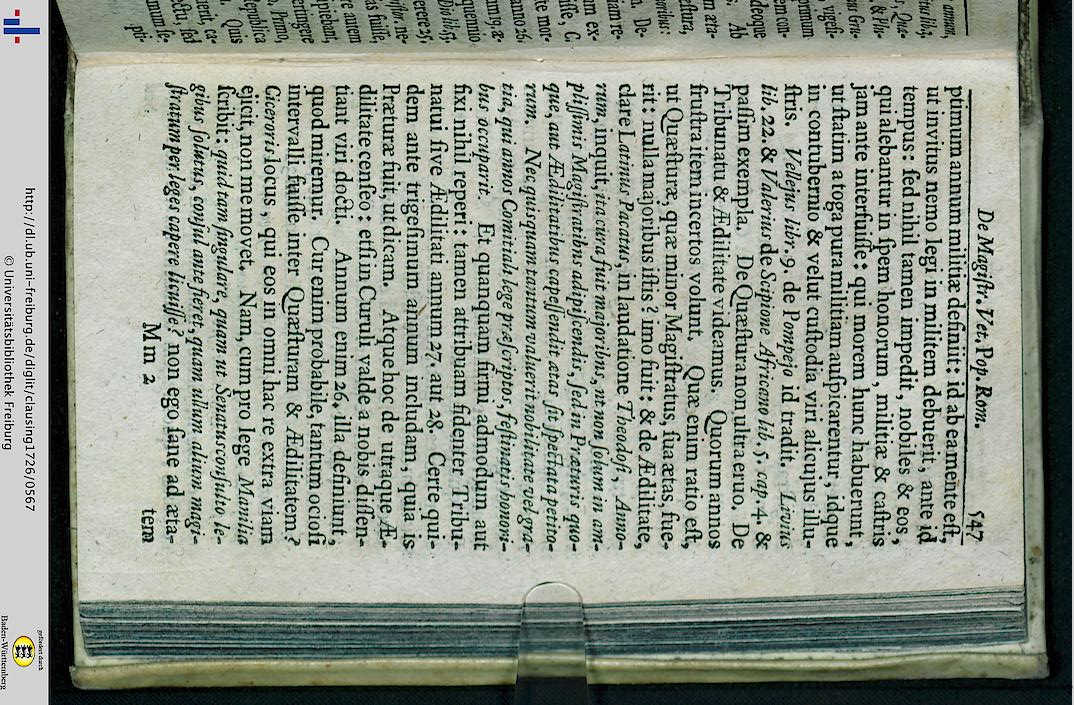 De Magiſtr. Vet. Pop. Rom. 547
ptimum annum militiæ definiit: id ab ea mente eſt,
ut invitus nemo legi in militem debuerit, ante id
tempus: ſed nihil tamen impedit, nobiles & eos,
qui alebantur in ſpem honorum, militiæ & caſtris
jam ante interfuiſſe: qui morem hunc habuerunt,
ut ſtatim a toga pura militiam auſpicarentur, idque
in contubernio & velut cuſtodia viri alicujus illu-
ſtris. Vellejus libr. 9. de Pompejo id tradit. Livius
lib. 22. & Valerius de Scipione Africano lib. 5. cap. 4. &
paſſim exempla. De Quæſtura non ultra eruo. De
Tribunatu & Ædilitate videamus. Quorum annos
fruſtra item incertos volunt. Quæ enim ratio eſt,
ut Quæſturæ, quæ minor Magiſtratus, ſua ætas, fue-
rit: nulla majoribus iſtis? imo fuit: & de Ædilitate,
clare Latinus Pacatus, in laudatione Theodoſi, Anno-
rum, inquit, ita cura fuit majoribus, ut non ſolum in am-
pliſſimis Magiſtratibus adipiſcendis, ſed in Præturis quo-
que, aut Ædilitatibus capeſſendit ætas ſit ſpectata petito-
rum. Nec quisquam tantum valuerit nobilitate vel gra-
tia, qui annos Comitiali lege præſcriptos, feſtinatis honori-
bus occuparit. Et quanquam firmi admodum aut
fixi nihil reperi: tamen attribuam fidenter Tribu-
natui ſive Ædilitati annum 27. aut 28. Certe qui-
dem ante trigeſimum annum includam, quia is
Præturæ fuit, ut dicam. Atque hoc de utraque Æ-
dilitate cenſeo: etſi in Curuli valde a nobis diſſen-
tiant viri docti. Annum enim 26. illa definiunt,
quod miremur. Cur enim probabile, tantum otioſi
intervalli fuiſſe inter Quæſturam & Ædilitatem?
Ciceronis locus, qui eos in omni hac re extra viam
ejicit, non me movet. Nam, cum pro lege Manilia
ſcribit: quid tam ſingulare, quam ut Senatusconſulto le-
gibus ſolutus, conſul ante fieret, quam ullum alium magi-
ſtratum per leges capere licuiſſet? non ego ſane ad æta-
M m 2 tem
http://dl.ub.uni-freiburg.de/diglit/clausing1726/0567
© Universitätsbibliothek Freiburg
gefördert durch
Baden-Württemberg